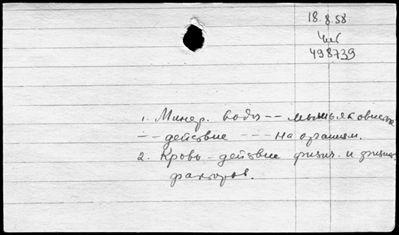 18.8.58
498739
1. Минер. воды -- мышьяковистые
-- действие --- на организм.
2. Кровь - действие физич. и
факторов.